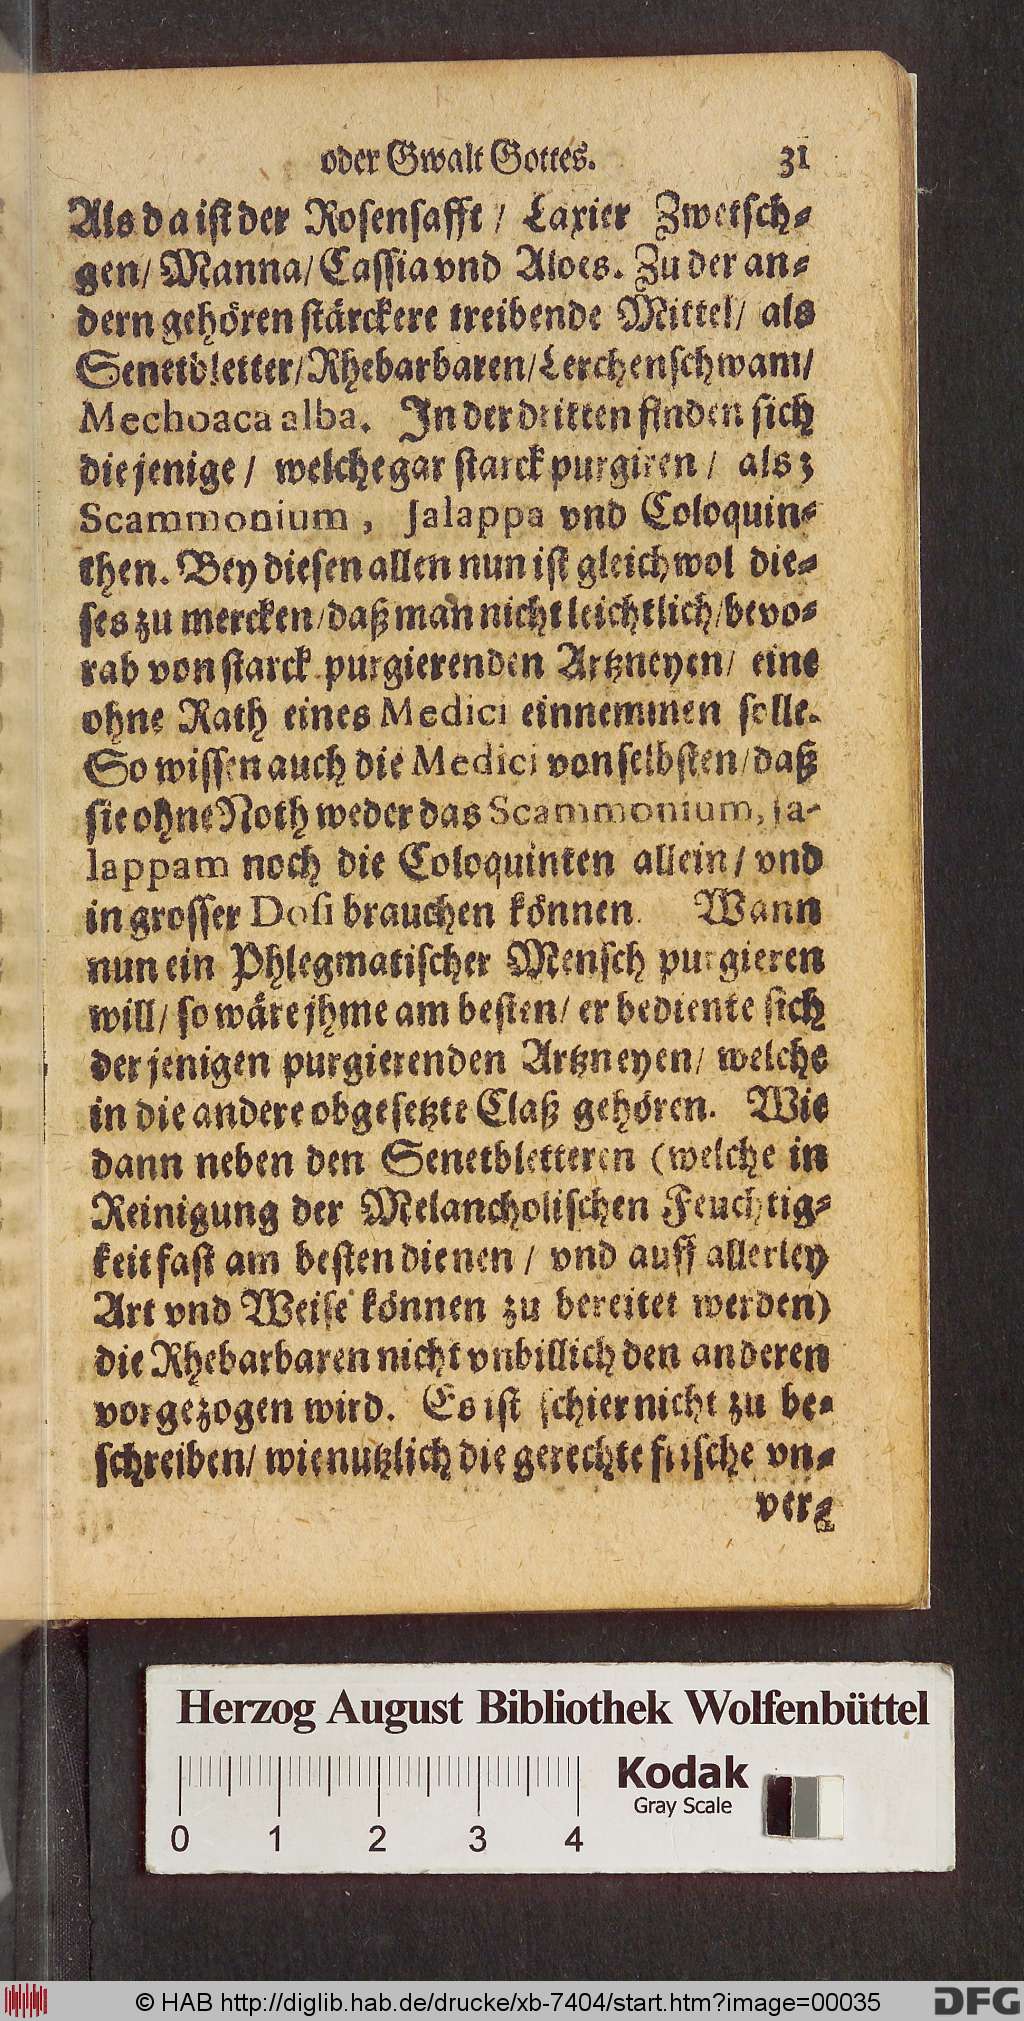 oder Gwalt Gottes. 31
Als da ist der Rosensafft / Laxier Zwetsch-
gen / Manna / Cassia vnd Aloes. Zu der an-
dern gehören stärckere treibende Mittel / als
Senetbletter / Rhebarbaren / Lerchenschwam /
Mechoaca alba. In der dritten finden sich
die jenige / welche gar starck purgiren / als;
Scammonium, Jalappa vnd Coloquin-
then. Bey diesen allen nun ist gleichwol die-
ses zu mercken / daß man nicht leichtlich / bevo-
rab von starck purgierenden Artzneyen / eine
ohne Rath eines Medici einnemmen solle.
So wissen auch die Medici von selbsten / daß
sie ohne Noth weder das Scammonium, Ja-
lappam noch die Coloquinten allein / vnd
in grosser Dosi brauchen können. Wann
nun ein Phlegmatischer Mensch purgieren
will / so wäre jhme am besten / er bediente sich
der jenigen purgierenden Artzneyen / welche
in die andere obgesetzte Claß gehören. Wie
dann neben den Senetbletteren (welche in
Reinigung der Melancholischen Feuchtig-
keit fast am besten dienen / vnd auff allerley
Art vnd Weise können zu bereitet werden)
die Rhebarbaren nicht vnbillich den anderen
vorgezogen wird. Es ist schier nicht zu be-
schreiben / wie nutzlich die gerechte frische vn-
ver-
Herzog August Bibliothek Wolfenbüttel
Kodak
Gray Scale
0 1 2 3 4
© HAB http://diglib.hab.de/drucke/xb-7404/start.htm?image=00035
DFG